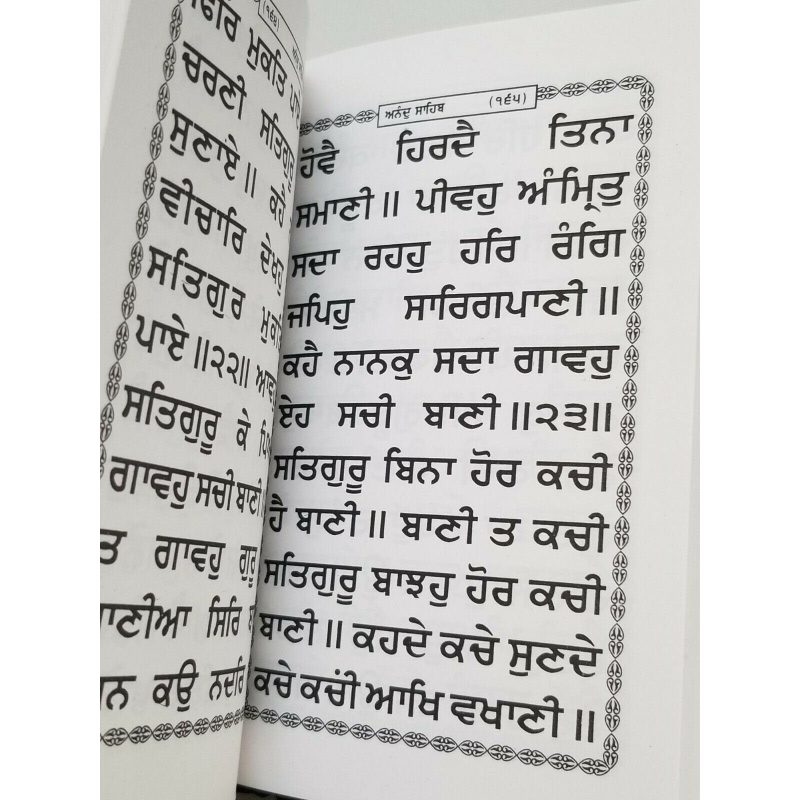 (੧੬੪)
ਫਿਰਿ ਮੁਕਤਿ
ਚਰਣੀ ਸਤਿਗੁਰੂ
ਸੁਣਾਏ॥ ਕਹੈ
ਵੀਚਾਰਿ ਦੇਖਹੁ
ਸਤਿਗੁਰ ਮੁਕਤਿ
ਪਾਏ॥੨੨॥
ਸਤਿਗੁਰੂ ਕੇ
ਗਾਵਹੁ ਸਚੀ ਬਾਣੀ
ਤ ਗਾਵਹੁ ਗੁਰੂ
ਬਾਣੀਆ ਸਿਰਿ
ਕਉ ਨਦਰਿ
ਅਨੰਦੁ ਸਾਹਿਬ (੧੬੫)
ਹੋਵੈ ਹਿਰਦੈ ਤਿਨਾ
ਸਮਾਣੀ॥ ਪੀਵਹੁ ਅੰਮ੍ਰਿਤੁ
ਸਦਾ ਰਹਹੁ ਹਰਿ ਰੰਗਿ
ਜਪਿਹੁ ਸਾਰਿਗਪਾਣੀ॥
ਕਹੈ ਨਾਨਕੁ ਸਦਾ ਗਾਵਹੁ
ਏਹ ਸਚੀ ਬਾਣੀ॥੨੩॥
ਸਤਿਗੁਰੂ ਬਿਨਾ ਹੋਰ ਕਚੀ
ਹੈ ਬਾਣੀ॥ ਬਾਣੀ ਤ ਕਚੀ
ਸਤਿਗੁਰੂ ਬਾਝਹੁ ਹੋਰ ਕਚੀ
ਬਾਣੀ॥ ਕਹਦੇ ਕਚੇ ਸੁਣਦੇ
ਕਚੇ ਕਚੀਂ ਆਖਿ ਵਖਾਣੀ॥